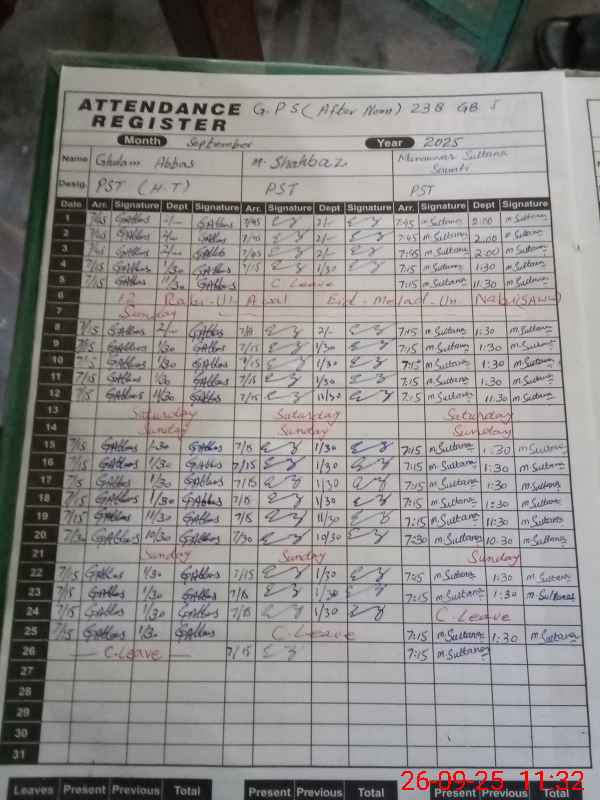 ATTENDANCE REGISTER G.P.S (After Noon) 238 GB
Month September Year 2025
Name Ghulam Abbas M. Shahbaz Munawar Sultana
Desig. PST (H.T) PST PST
Date Arr. Signature Dept Signature Arr. Signature Dept Signature Arr. Signature Dept Signature
1 GAbbas GAbbas 7/45 2/- 7:45 m.Sultana 2:00 m.Sultana
2 GAbbas GAbbas 2/- 7:45 m.Sultana 2:00 m.Sultana
3 GAbbas GAbbas 7/45 2/- 7:45 m.Sultana 2:00 m.Sultana
4 7/15 GAbbas 1/30 GAbbas 7/15 1/30 7:15 m.Sultana 1:30 m.Sultana
5 7/15 GAbbas 11/30 GAbbas C. Leave 7:15 m.Sultana 11:30 m.Sultana
6 12 Rabi-Ul-Awal Eid-Melad-Un Nabi(SAWW)
7 Sunday
8 7/15 GAbbas 2/- GAbbas 7/15 2/- 7:15 m.Sultana 1:30 m.Sultana
9 7/15 GAbbas 1/30 GAbbas 7/15 1/30 7:15 m.Sultana 1:30 m.Sultana
10 GAbbas 1/30 GAbbas 7/15 1/30 7:15 m.Sultana 1:30 m.Sultana
11 7/15 GAbbas 1/30 GAbbas 7/15 1/30 7:15 m.Sultana 1:30 m.Sultana
12 7/15 GAbbas 11/30 GAbbas 7/15 11/30 7:15 m.Sultana 11:30 m.Sultana
13 Saturday Saturday Saturday
14 Sunday Sunday Sunday
15 7/15 GAbbas 1/30 GAbbas 7/15 1/30 7:15 m.Sultana 1:30 m.Sultana
16 7/15 GAbbas 1/30 GAbbas 7/15 1/30 7:15 m.Sultana 1:30 m.Sultana
17 7/15 GAbbas 1/30 GAbbas 7/15 1/30 7:15 m.Sultana 1:30 m.Sultana
18 7/15 GAbbas 1/30 GAbbas 7/15 1/30 7:15 m.Sultana 1:30 m.Sultana
19 7/15 GAbbas 11/30 GAbbas 7/15 11/30 7:15 m.Sultana 11:30 m.Sultana
20 7/30 GAbbas 10/30 GAbbas 7/30 10/30 7:30 m.Sultana 10:30 m.Sultana
21 Sunday Sunday Sunday
22 7/15 GAbbas 1/30 GAbbas 7/15 1/30 m.Sultana 1:30 m.Sultana
23 7/15 GAbbas 1/30 GAbbas 7/15 1/30 7:15 m.Sultana 1:30 m.Sultana
24 7/15 GAbbas 1/30 GAbbas 7/15 1/30 C. Leave
25 7/15 GAbbas 1/30 GAbbas C. Leave 7:15 m.Sultana 1:30 m.Sultana
26 C. Leave 7/15 7:15 m.Sultana
27
28
29
30
31
Leaves Present Previous Total Present Previous Total Present Previous Total
26-09-25 11:32